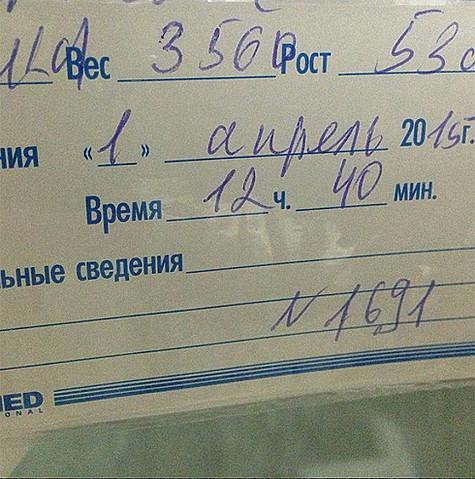 Вес 3560 Рост 53с
ния «1» апрель 2015г.
Время 12 ч. 40 мин.
ьные сведения
N 1691
MED
ONAL